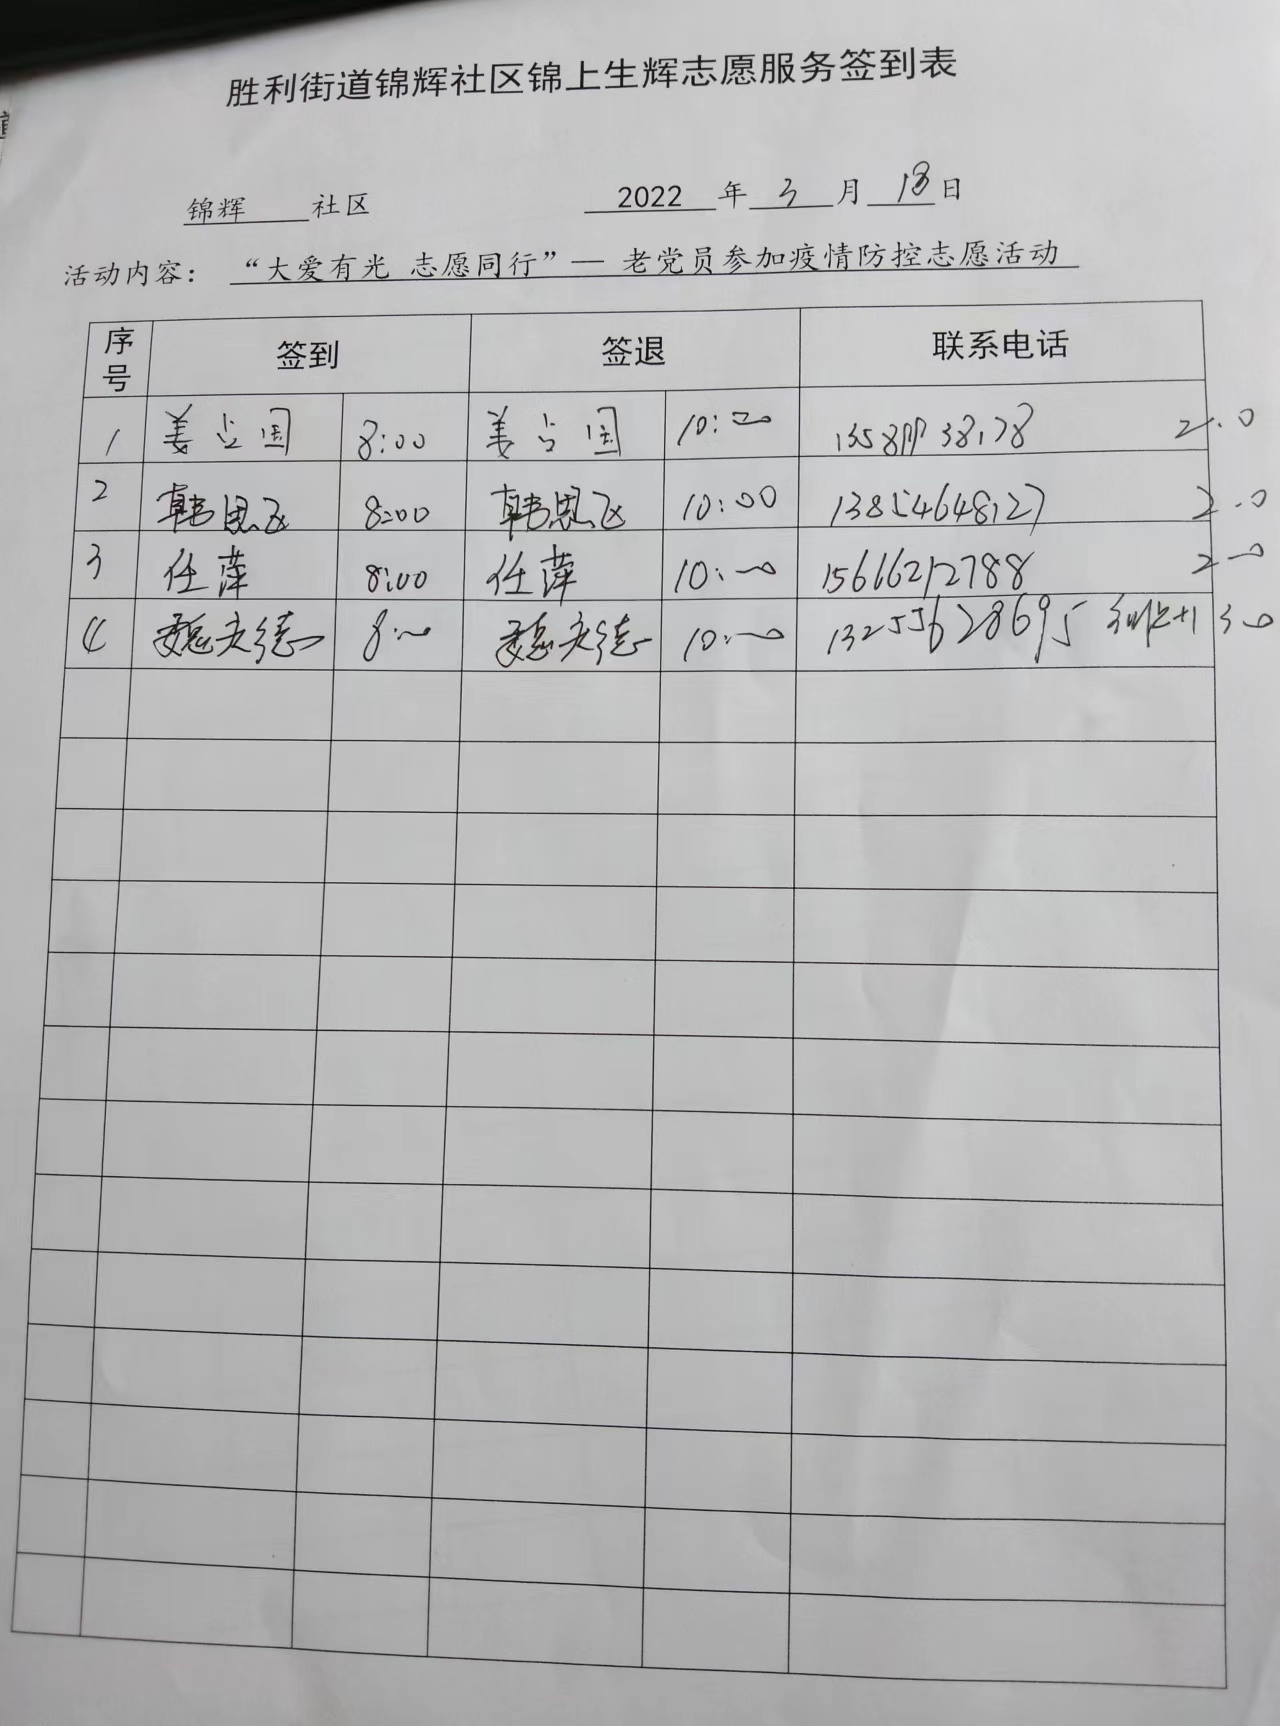 胜利街道锦辉社区锦上生辉志愿服务签到表
锦辉 社区 2022 年 3 月 18 日
活动内容： “大爱有光 志愿同行”— 老党员参加疫情防控志愿活动
序号 签到 签退 联系电话
1 姜占国 8:00 姜占国 10:00 2.0
2 韩思飞 8:00 韩思飞 10:00 13854648127 2.0
3 任萍 8:00 任萍 10:00 15666212788 2.0
4 8:00 10:00 13255628695 3.0